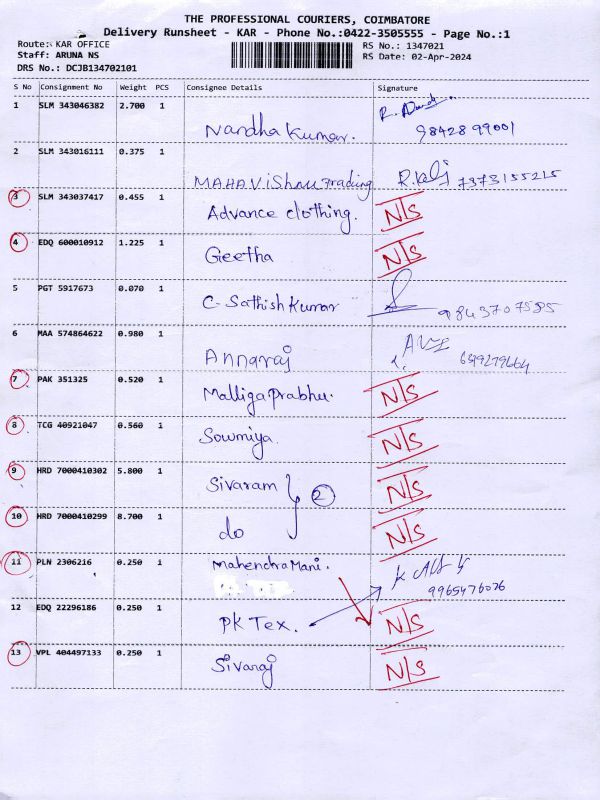 THE PROFESSIONAL COURIERS, COIMBATORE
Delivery Runsheet - KAR - Phone No.:0422-3505555 - Page No.:1
Route: KAR OFFICE
RS No.: 1347021
Staff: ARUNA NS
RS Date: 02-Apr-2024
DRS No.: DCJB134702101
S No Consignment No Weight PCS Consignee Details Signature
1 SLM 343046382 2.700 1
Nandha Kumar. 98428 99001
2 SLM 343016111 0.375 1
MAHAVishnu Trading 7373155215
3 SLM 343037417 0.455 1
Advance clothing. N/S
4 EDQ 600010912 1.225 1
Geetha N/S
5 PGT 5917673 0.070 1
C. Sathish Kumar 9843707585
6 MAA 574864622 0.980 1
Annaraj
7 PAK 351325 0.520 1
Malliga Prabhu. N/S
8 TCG 40921047 0.560 1
Sowmiya N/S
9 HRD 7000410302 5.800 1
Sivaram 2 N/S
10 HRD 7000410299 8.700 1
do N/S
11 PLN 2306216 0.250 1
Mahendra Mani. 9965476026
12 EDQ 22296186 0.250 1
PK Tex. N/S
13 VPL 404497133 0.250 1
Sivaraj N/S